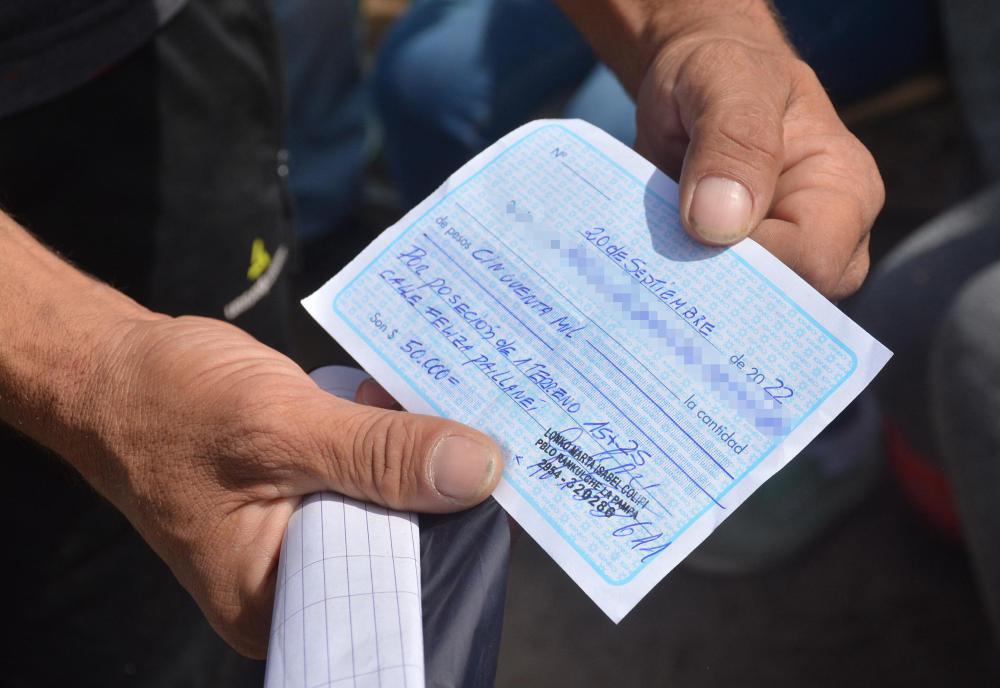 Nº
20 de Septiembre de 2022
la cantidad
de pesos CINCUENTA MIL
POR POSECIÓN de 1 TERRENO 15+25
CALLE FELIZA PAILLANEI
Son $ 50.000=
LONKO MARIA ISABEL COLIPI
PBLO RANKULCHE LA PAMPA
2954-320286